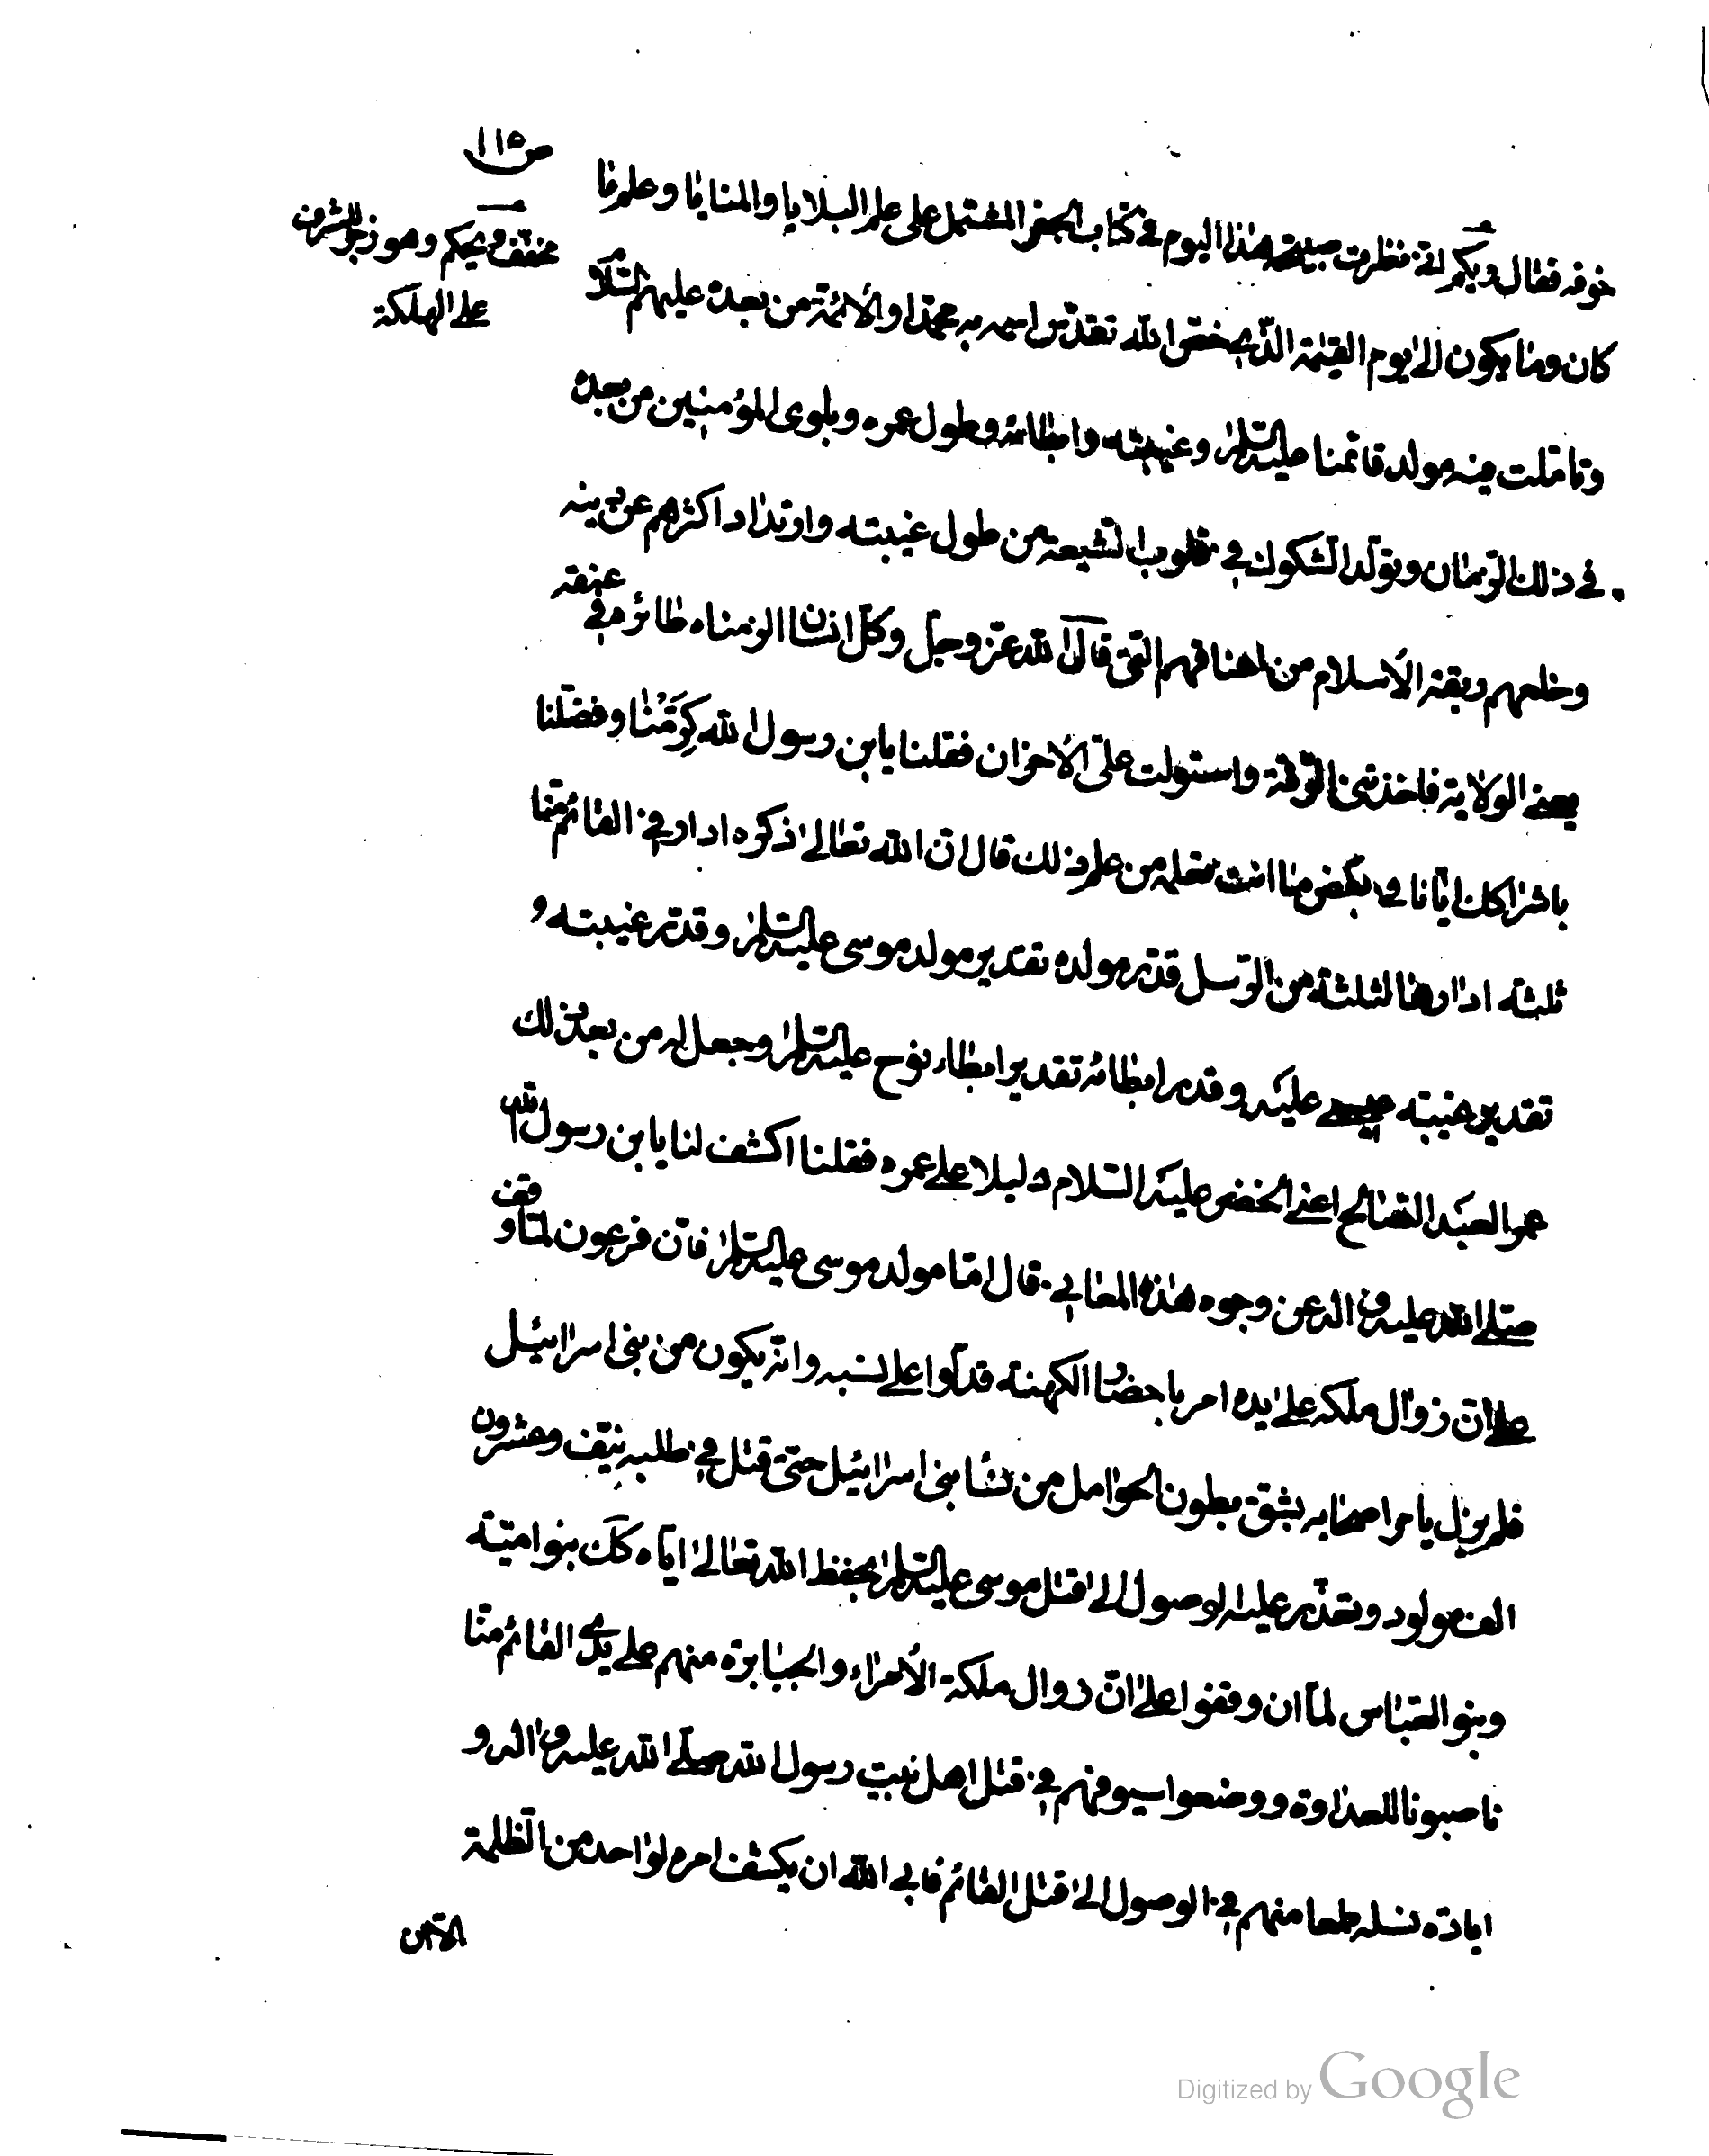 ص ١١٥
مخفف ويحكم وهو زجر للمشرف
على الهلكة
خوفه فقال ويكم اني نظرت صبيحة هذا اليوم في كتاب الجفر المشتمل على علم البلايا والمنايا وعلم ما
كان وما يكون الى يوم القيمة الذي خص الله تقدس اسمه به محمدا والائمة من بعده عليهم السلام
وتاملت فيه مولد قائمنا عليه السلم وغيبته وابطائه وطول عمره وبلوى المؤمنين من بعده
في ذلك الزمان وتولد الشكوك في قلوب الشيعة من طول غيبته وارتداد اكثرهم عن دينه
وخلعهم ربقة الاسلام من اعناقهم التي قال الله عز وجل وكل انسان الزمناه طائره في عنقه
يعني الولاية فاخذتني الرقة واستولت علي الاحزان فقلنا يابن رسول الله كرمنا وفضلنا
باشراكك ايانا في بعض ما انت تعلمه من علم ذلك قال ان الله تعالى ذكره ادار في القائم منا
ثلثة ادارها لثلثة من الرسل قدر مولده تقدير مولد موسى عليه السلم وقدر غيبته و
تقدير غيبته عيسى عليه وقدر ابطائه تقدير ابطاء نوح عليه السلم وجعل له من بعد ذلك
عمر العبد الصالح اعني الخضر عليه السلام دليلا على عمره فقلنا اكشف لنا يابن رسول الله
صلى الله عليه واله عن وجوه هذه المعاني قال اما مولد موسى عليه السلم فان فرعون لما وقف
على ان زوال ملكه على يده امر باحضا الكهنة فدلوا على نسبه وانه يكون من بني اسرائيل
فلم يزل يامر اصحابه بشق بطون الحوامل من نسا بني اسرائيل حتى قتل في طلبه نيف وعشرون
الف مولود وتعذر عليه الوصول الى قتل موسى عليه السلم بحفظ الله تعالى اياه كك بنو امية
وبنو العباس لما ان وقفوا على ان زوال ملكة الامراء والجبابرة منهم على يدي القائم منا
ناصبونا للعداوة ووضعوا سيوفهم في قتل اهل بيت رسول الله صلى الله عليه واله و
ابادة نسله طمعا منهم في الوصول الى قتل القائم فابى الله ان يكشف امره لواحد من الظلمة
Digitized by Google